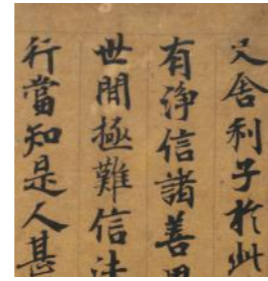 又舍利子於此
有淨信諸善男
世間極難信法
行當知是人甚